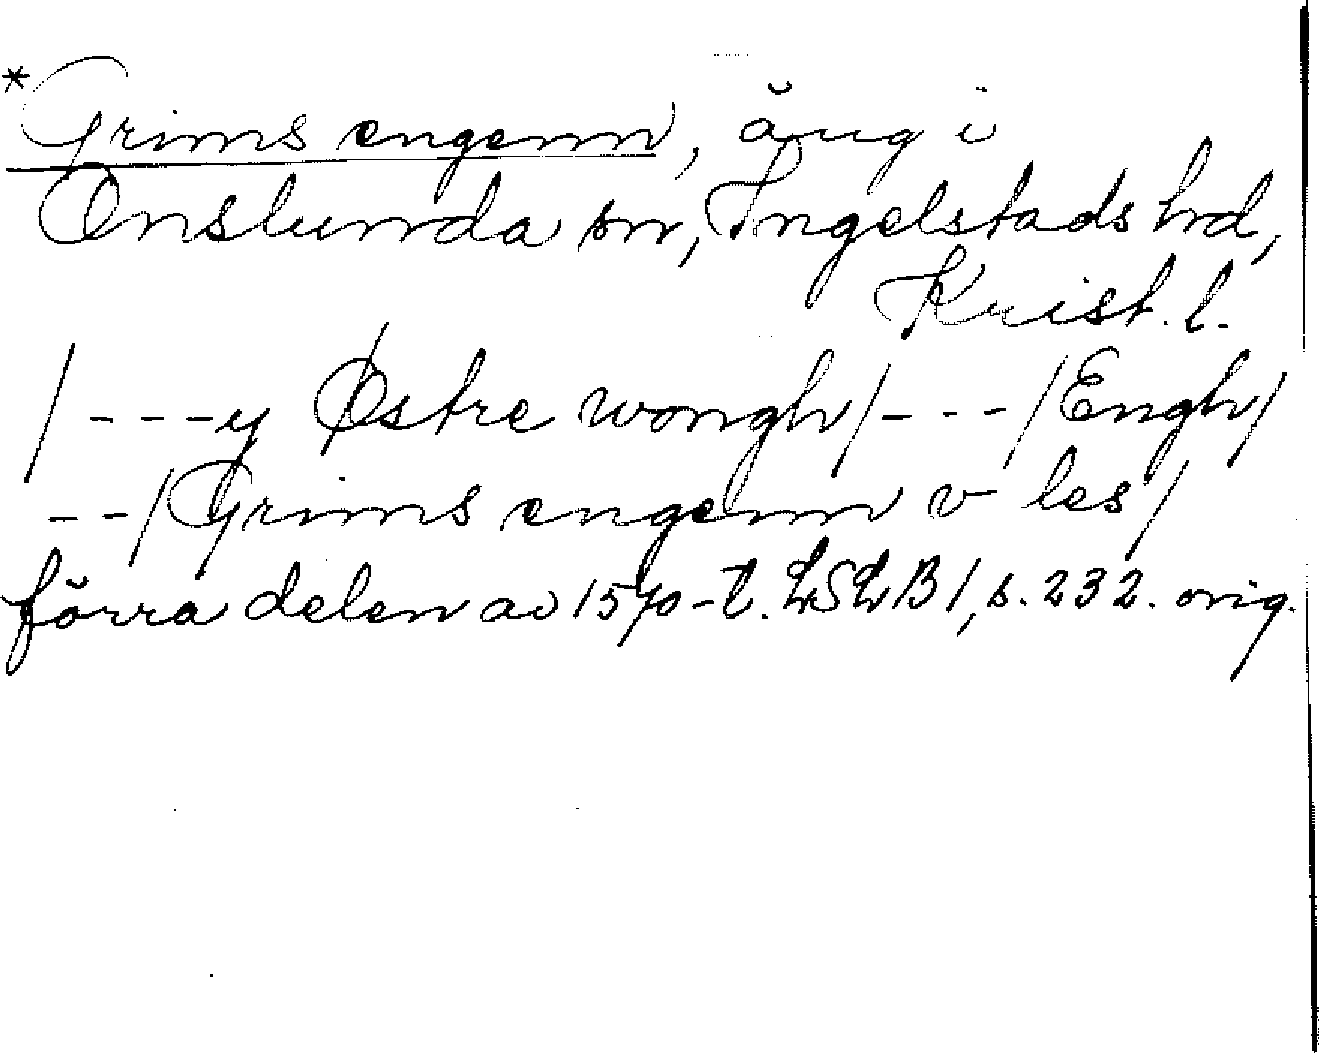 *Grims engenn, äng i
Onslunda sn, Ingelstads hd,
Krist. l.
/---y Østre wongh/---/Engh/
--/Grims engenn v les/
förra delen av 1570-t. LSLB 1, s. 232. orig.